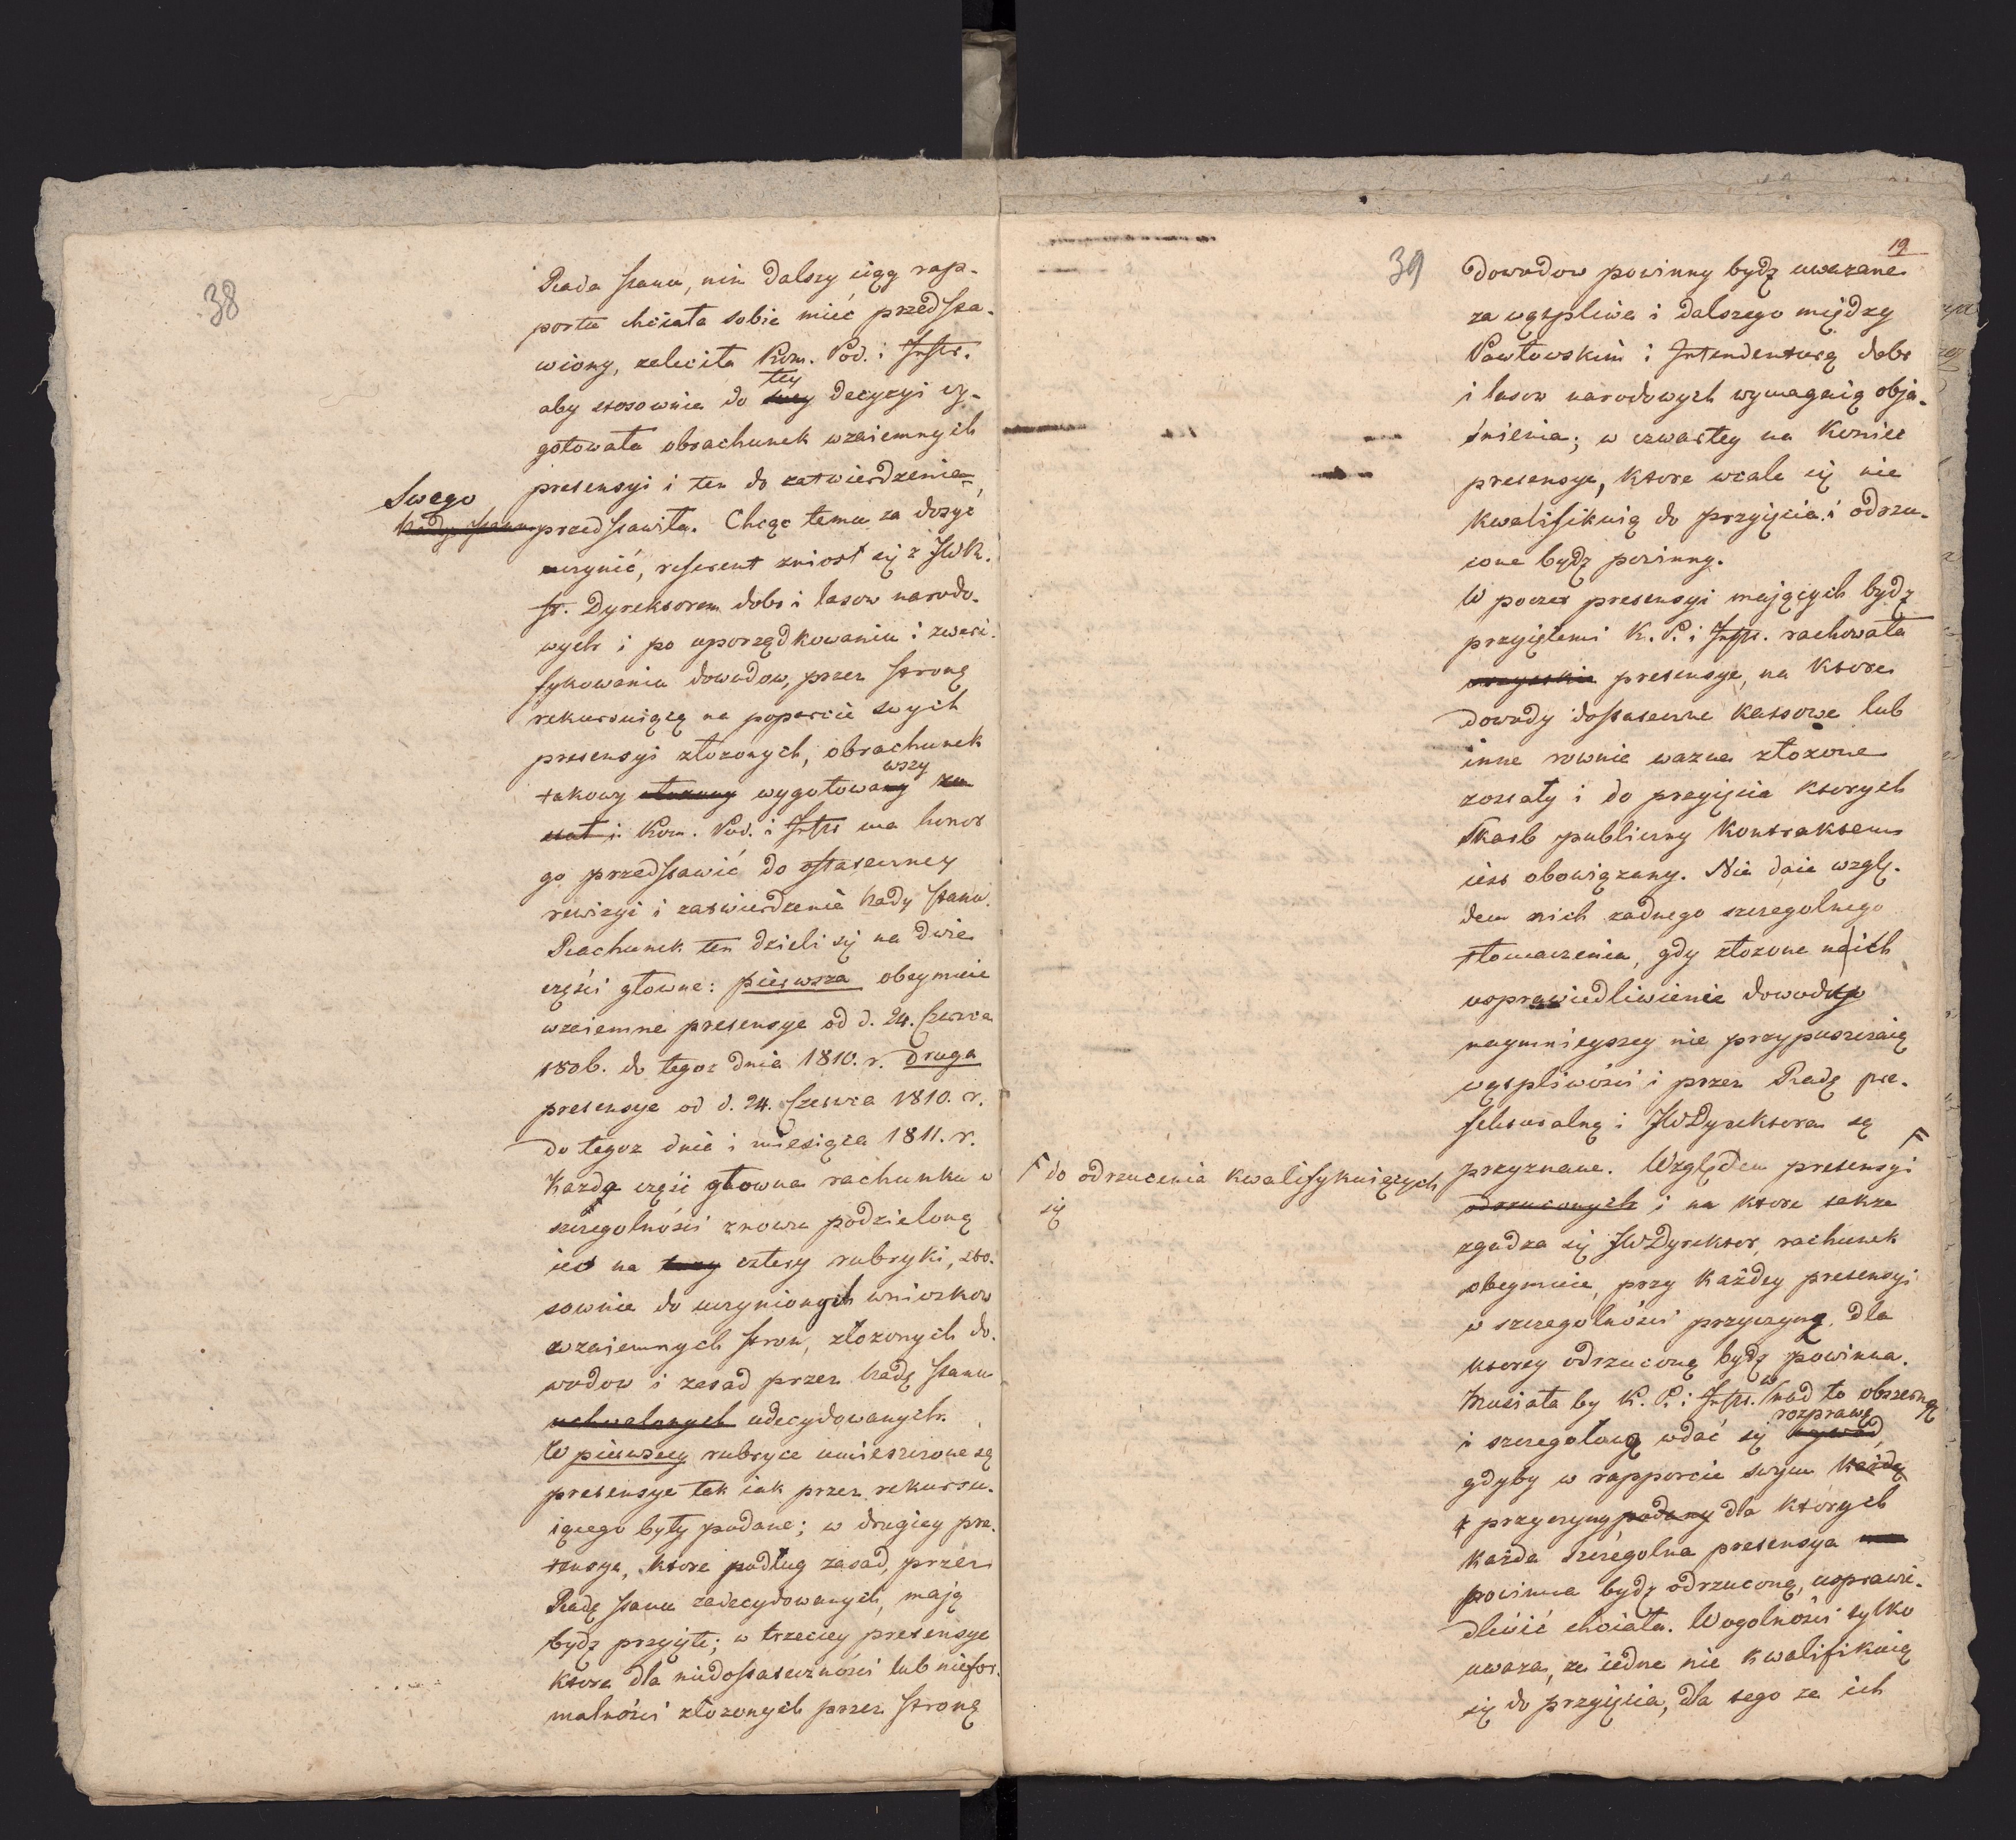 38
Rada stanu, nim dalszy ciąg rap-
portu chciała sobie mieć przedsta-
wiony, zaleciła Kom. Pod. i Instr.
aby stosownie do tey decyzyi wy-
gotowała obrachunek wzaiemnych
pretensyi i ten do zatwierdzenia
Swego
Rady stanu przedstawiła. Chcąc temu za dosyć
uczynić, referent zniosł się z JWR.
St. Dyrektorem dobr i lasow narodo-
wych i po uporządkowaniu i zweri-
fykowaniu dowodow, przez stronę
rekursuiącą na poparcie swych
pretensyi złożonych, obrachunek
wszy
takowy wygotowany zo-
stał i Kom. Pod. i Instr ma honor
go przedstawić do ostateczney
rewizyi i zatwierdzenia Rady stanu.
Rachunek ten dzieli się na dwie
części głowne: pierwsza obeymuie
wzaiemne pretensye od d. 24. Czerwca
1806. do tegoz dnia 1810. r. druga
pretensye od d. 24. Czerwca 1810. r.
do tegoz dnia i miesiąca 1811. r.
Każda część głowna rachunku w
szczegolności znowu podzieloną
iest na trzy cztery rubryki, sto-
sownie do uczynionych wnioskow
wzaiemnych stron, złożonych do-
wodow i zasad przez Radę stanu
uchwalonych udecydowanych.
W pierwszey rubryce umieszczone są
pretensye tak iak przez rekursu-
iącego były podane; w drugiey pre-
tensye, ktore podług zasad, przez
Radę stanu zadecydowanych, mają
bydz przyięte; w trzeciey pretensye
ktore dla niedostateczności lub niefor-
malności złożonych przez stronę
39
19
dowodow powinny bydz uwazane
za wątpliwe i dalszego między
Pawłowskim i Intendenturą dobr
i lasow narodowych wymagaią obja-
śnienia; w czwartey na koniec
pretensye, ktore wcale się nie
kwalifikuią do przyięcia i odrzu-
cone bydz powinny.
W poczet pretensyi mających bydz
przyiętemi K. P. i Instr. rachowała
wszystkie pretensye, na ktore
dowody dostateczne kassowe lub
inne rownie wazne złożone
zostały i do przyięcia ktorych
Skarb publiczny kontraktem
iest obowiązany. Nie daie wzglę-
dem nich zadnego szczegolnego
tłomaczenia, gdy złożone na ich
usprawiedliwienie dowody
naymnieyszey nie przypuszczaią
wątpliwości i przez Radę pre-
fekturalną i JWDyrektora są
przyznane. Względem pretensyi F
F do odrzucenia kwalifykuiących
się
odrzuconych i na ktore takze
zgadza się JWDyrektor, rachunek
obeymuie, przy każdey pretensyi
w szczegolności przyczynę, dla
ktorey odrzuconą bydz powinna.
Musiała by K. P. i Instr. nad to w obszerną
rozprawę
i szczegołową wdać się wywod,
gdyby w rapporcie swym każdą
z przyczyny podany dla których
każda szczegolna pretensya
powinna bydz odrzuconą, usprawie-
dliwić chciała. W ogolności tylko
uważa, ze iedne nie kwalifikuią
się do przyięcia, dla tego ze ich